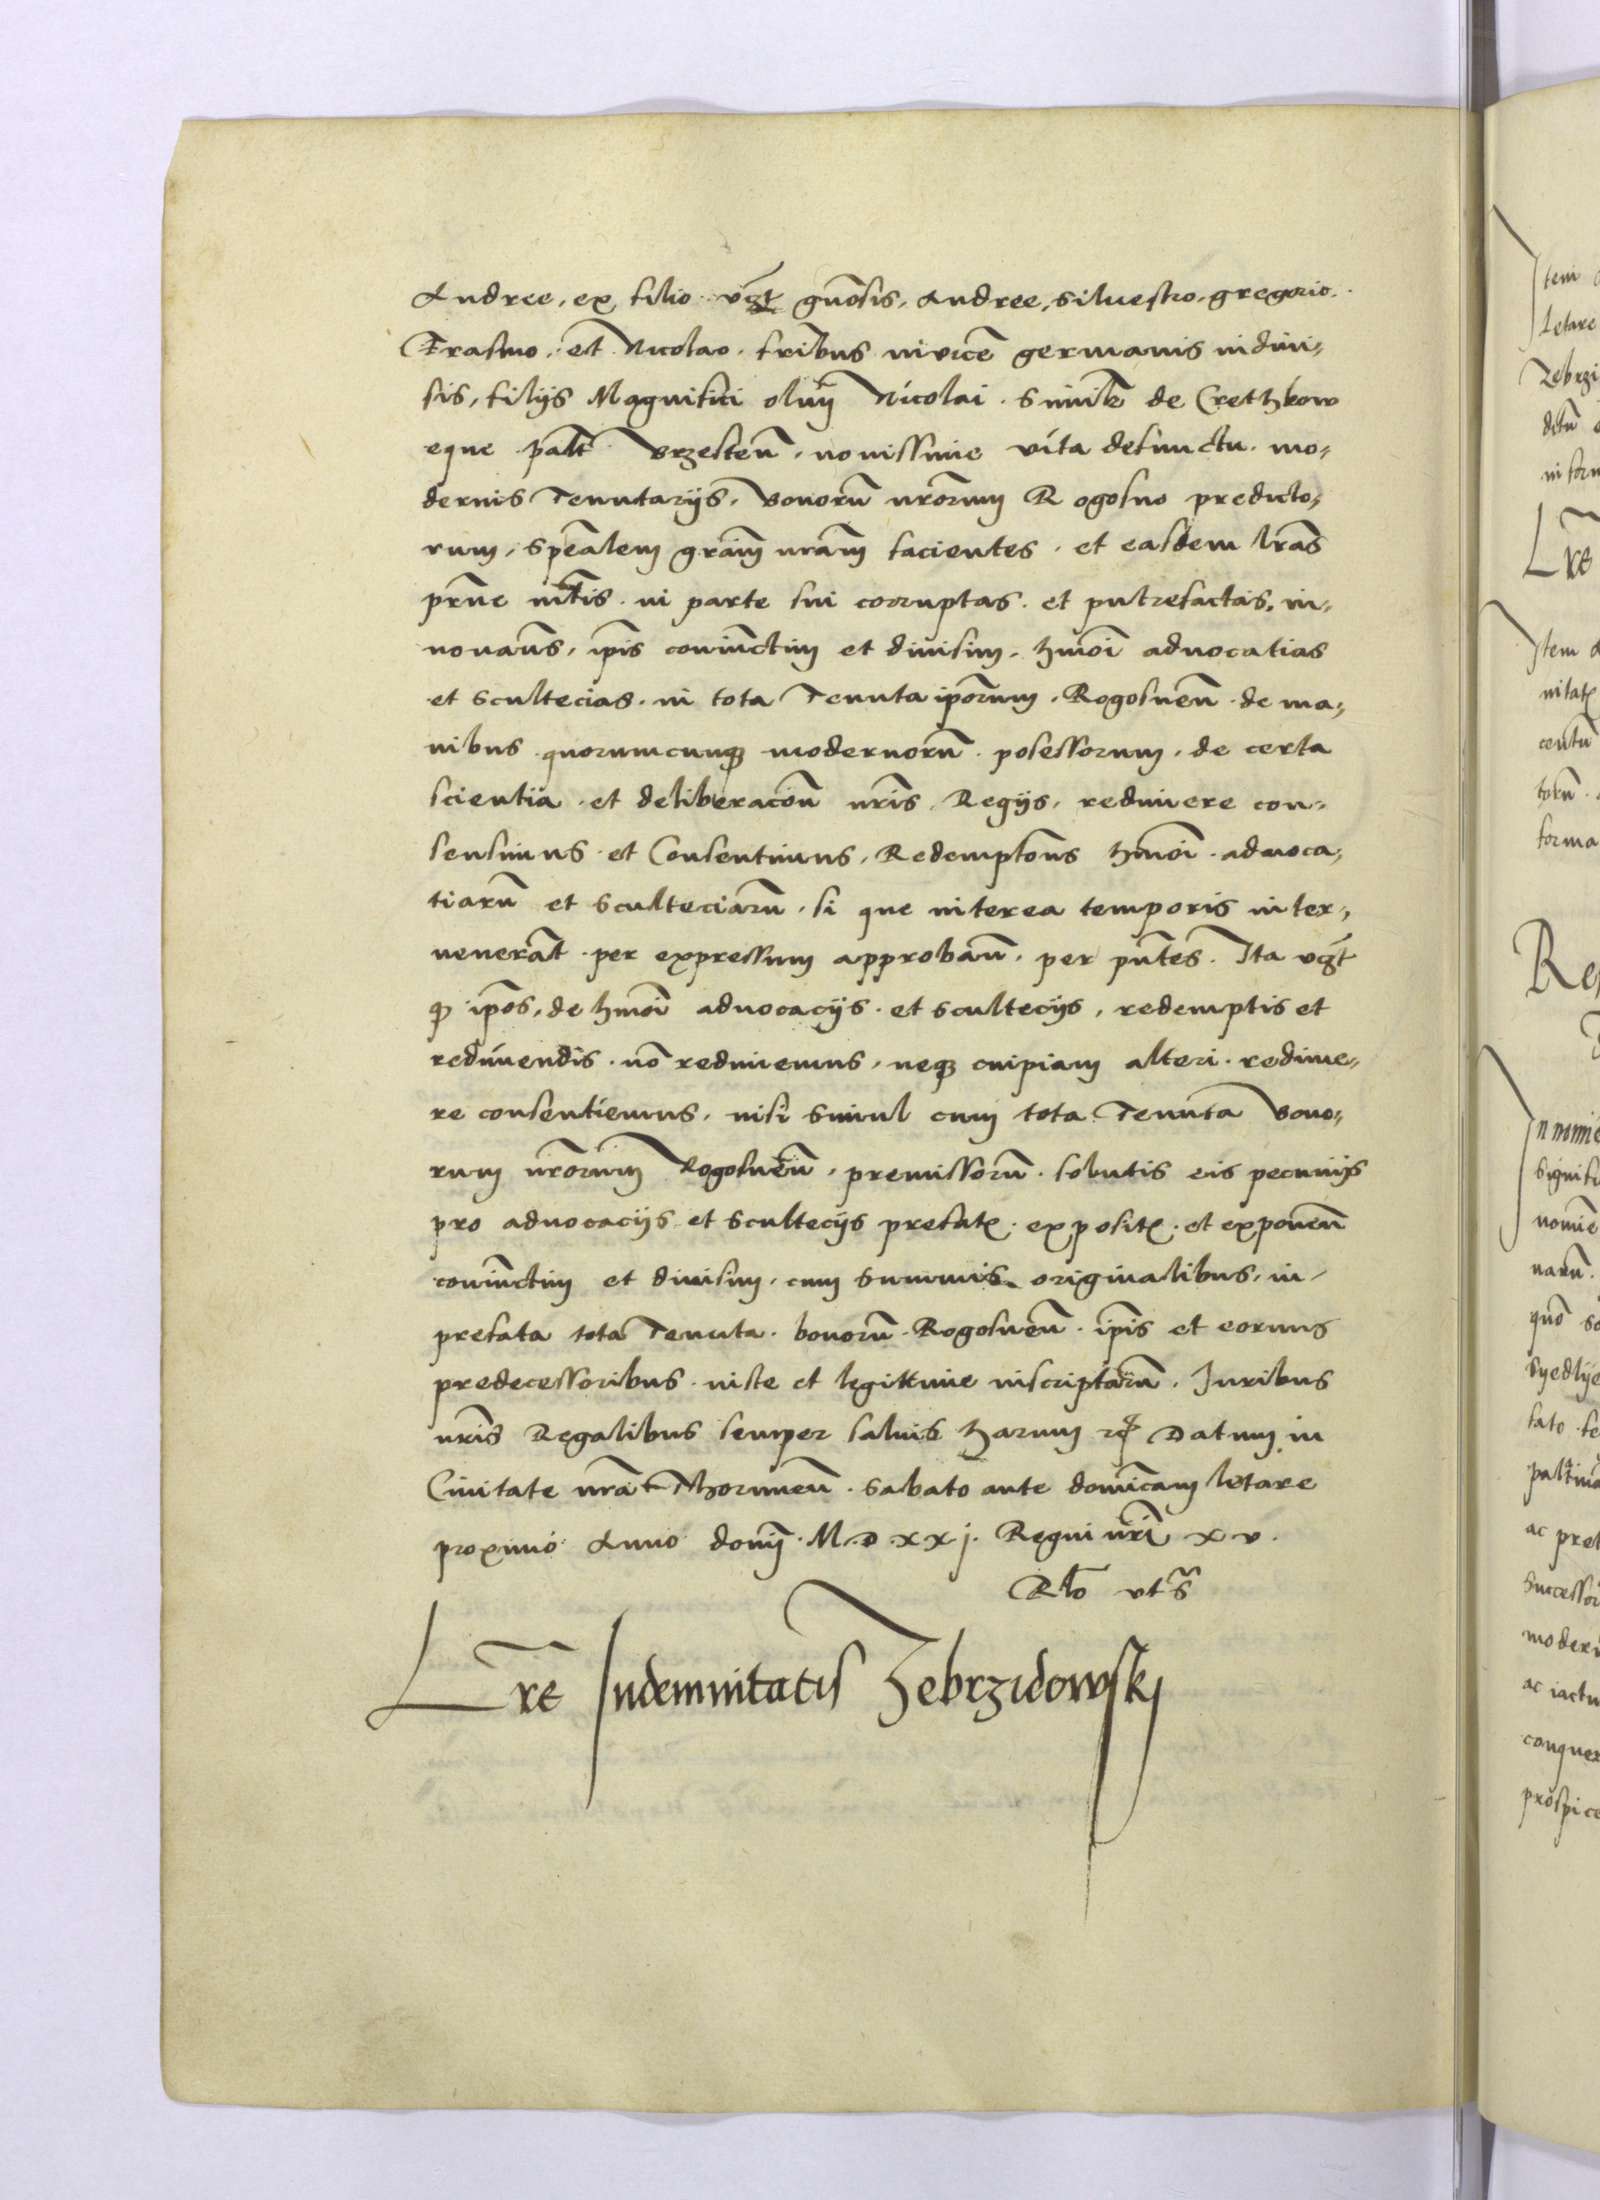 Andree, ex filio vcʒt gn̄osis, Andree, Siluestro, gregorio.
Erasmo, et Nicolao, fr̄ibus invicē germanis indivi,
sis, filijs Magnifici olim̄ Nicolai Simile de Cretzkow
eque palt̄ Brzesten̄, novissime vita defunctu. mo,
dernis Tenutarijs, Bonorū nr̄orum Rogosno predicto,
rum, Spēalem grām nrām facientes. et easdem lr̄as
prn̄e int̄is in parte sui corruptas et putrefactas, in,
novan̄s, ip̄is coniūctim et divisim, hmōi advocatias
et Scultecias in tota Tenuta ip̄orum Rogosnen̄ de ma,
nibus quorumcunqȝ modernorū possessorum, de certa
scientia et deliberacōn nr̄is Regijs, redimere con,
sensimus et Consentimus, Redemptōns hmōi advoca,
tiarū et Sculteciarū, si que interea temporis inter,
venerāt per expressum approban̄, per pn̄tes. Ita vcʒt
qͦ ip̄os, de hmōi advocacijs et Scultecijs, redemptis et
redimendis nō redimemus, neqȝ cuipiam alteri redime,
re consentiemus, nisi Simul cum tota Tenuta Bono,
rum nr̄orum Rogosnen̄, premissorū solutis eis pecunijs
pro advocacijs et Scultecijs prefatꝭ expositꝭ et exponen̄
coniūctim et divisim, cum Summis originalibus, in
prefata tota Tenuta bonorū Rogosnen̄ ip̄is et eorum
predecessoribus iuste et legittime inscriptarū. Juribus
nr̄is Regalibus semper salvis harum rc̄ Datum in
Civitate nrā Thorunien̄ Sabato ante domīcam letare
proximo Anno domī M.D.xxj. Regni nr̄i xv.
Rl̄o vt s̄
Lr̄e Indemnitatis Zebrzidowskj